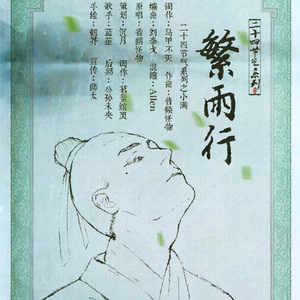 二十四节气系列
繁雨行
二十四节气系列之小满
词作：马甲不买 作曲：音频怪物
编曲：刘李戈 混缩：Allen
原唱：音频怪物
策划：沉月 词作：
歌手：蓝莲 后期：公孙未央
手绘： 宣传：师太